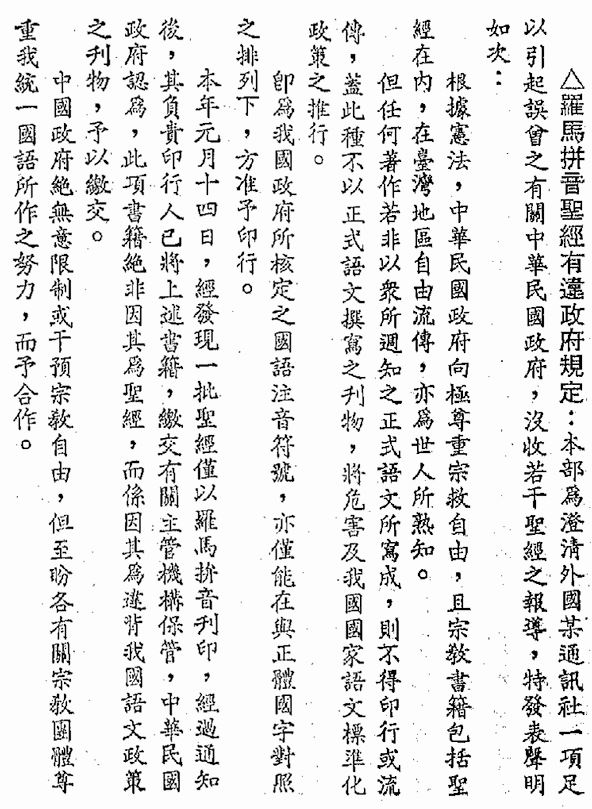 △羅馬拼音聖經有違政府規定：本部爲澄清外國某通訊社一項足
以引起誤會之有關中華民國政府，沒收若干聖經之報導，特發表聲明
如次：
根據憲法，中華民國政府向極尊重宗教自由，且宗教書籍包括聖
經在內，在臺灣地區自由流傳，亦爲世人所熟知。
但任何著作若非以衆所週知之正式語文所寫成，則不得印行或流
傳，蓋此種不以正式語文撰寫之刊物，將危害及我國國家語文標準化
政策之推行。
卽爲我國政府所核定之國語注音符號，亦僅能在與正體國字對照
之排列下，方准予印行。
本年元月十四日，經發現一批聖經僅以羅馬拚音刊印，經過通知
後，其負責印行人已將上述書籍，繳交有關主管機構保管，中華民國
政府認爲，此項書籍絶非因其爲聖經，而係因其爲違背我國語文政策
之刊物，予以繳交。
中國政府絶無意限制或干預宗教自由，但至盼各有關宗教團體尊
重我統一國語所作之努力，而予合作。